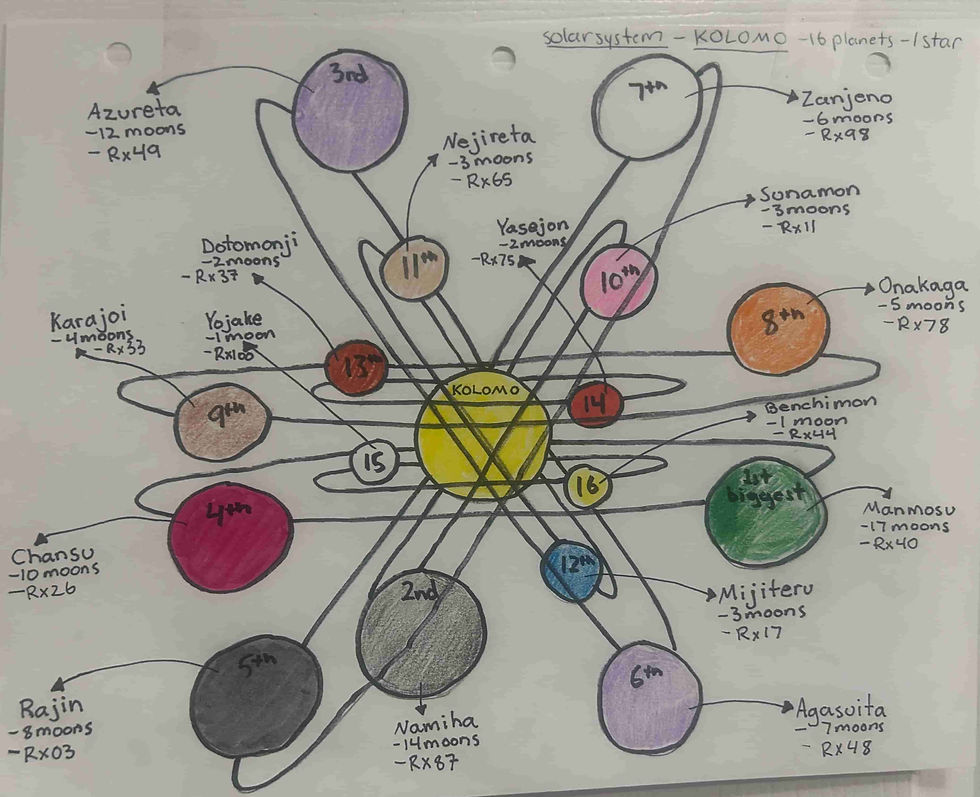 solar system - KOLOMO - 16 planets - 1 star
3rd
7th
Azureta
-12 moons
- Rx49
Zanjeno
-6 moons
- Rx98
Nejireta
-3 moons
- Rx65
Sunamon
-3 moons
- Rx11
Yasejon
-2 moons
-Rx75
Dotomonji
-2 moons
-Rx37
11th
10th
Onakaga
-5 moons
- Rx78
8th
Karajoi
-4 moons
-Rx33
Yojake
-1 moon
-Rx100
13th
KOLOMO
14
9th
Benchimon
-1 moon
-Rx44
15
16
1st
biggest
4th
Manmosu
-17 moons
-Rx40
Chansu
-10 moons
-Rx26
12th
2nd
Mijiteru
-3 moons
- Rx17
5th
6th
Rajin
-8 moons
-Rx03
Namiha
-14 moons
-Rx87
Agasuita
-7 moons
- Rx48